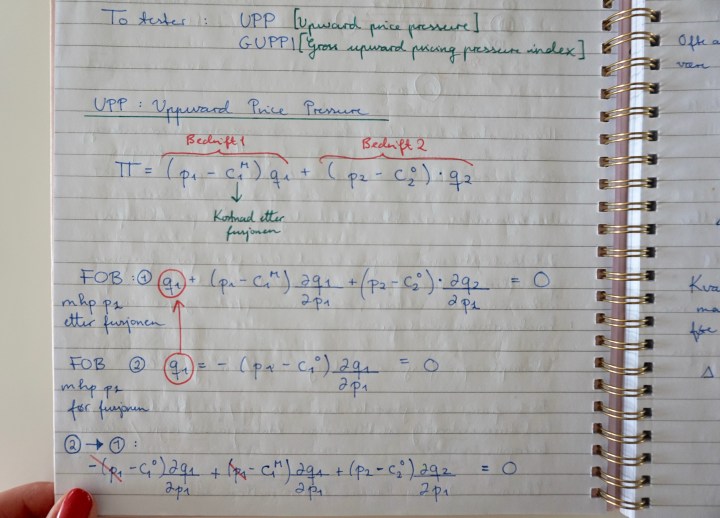 To tester : UPP [Upward price pressure]
GUPPI [Gross upward pricing pressure index]
UPP : Uppward Price Pressure
Bedrift 1 Bedrift 2
π = (p₁ - c₁ᴹ) q₁ + (p₂ - c₂⁰) · q₂
Kostnad etter
fusjonen
FOB : ① q₁ + (p₁ - c₁ᴹ) ∂q₁/∂p₁ + (p₂ - c₂⁰) · ∂q₂/∂p₁ = 0
mhp p₁
etter fusjonen
FOB ② q₁ = - (p₁ - c₁⁰) ∂q₁/∂p₁ = 0
mhp p₁
før fusjonen
② → ① :
-(p₁ - c₁⁰) ∂q₁/∂p₁ + (p₁ - c₁ᴹ) ∂q₁/∂p₁ + (p₂ - c₂⁰) ∂q₂/∂p₁ = 0
Ofte
Kva
før
Δ